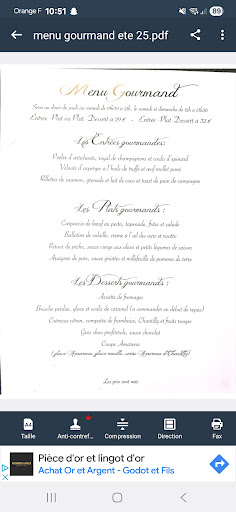 Orange F 10:51 89
menu gourmand ete 25.pdf
Menu Gourmand
Entrée - Plat ou Plat - Dessert à 29 € - Entrée - Plat - Dessert à 32 €
Les Entrées gourmandes:
Poêlée d'artichauts, royal de champignons et coulis d'épinard
Velouté d'asperges à l'huile de truffe et œuf mollet pané
Rillettes de saumon, grenade et lait de coco et toast de pain de campagne
Les Plats gourmands:
Carpaccio de bœuf au pesto, tapenade, frites et salade
Ballotine de volaille, crème à l'ail des ours et risotto
Retour de pêche, sauce vierge aux olives et petits légumes de saison
Araignée de porc, sauce griottes et millefeuille de pommes de terre
Les Desserts gourmands:
Assiette de fromages
Brioche perdue, glace et coulis de caramel (à commander en début de repas)
Crémeux citron, compotée de framboises, Chantilly et fruits rouges
Gros chou profiterole, sauce chocolat
Coupe Amarena
(glace Amarena, glace vanille, cerise Amarena et Chantilly)
Les prix sont nets
Taille
Anti-contref...
Compression
Direction
Fax
Pièce d'or et lingot d'or
Achat Or et Argent - Godot et Fils